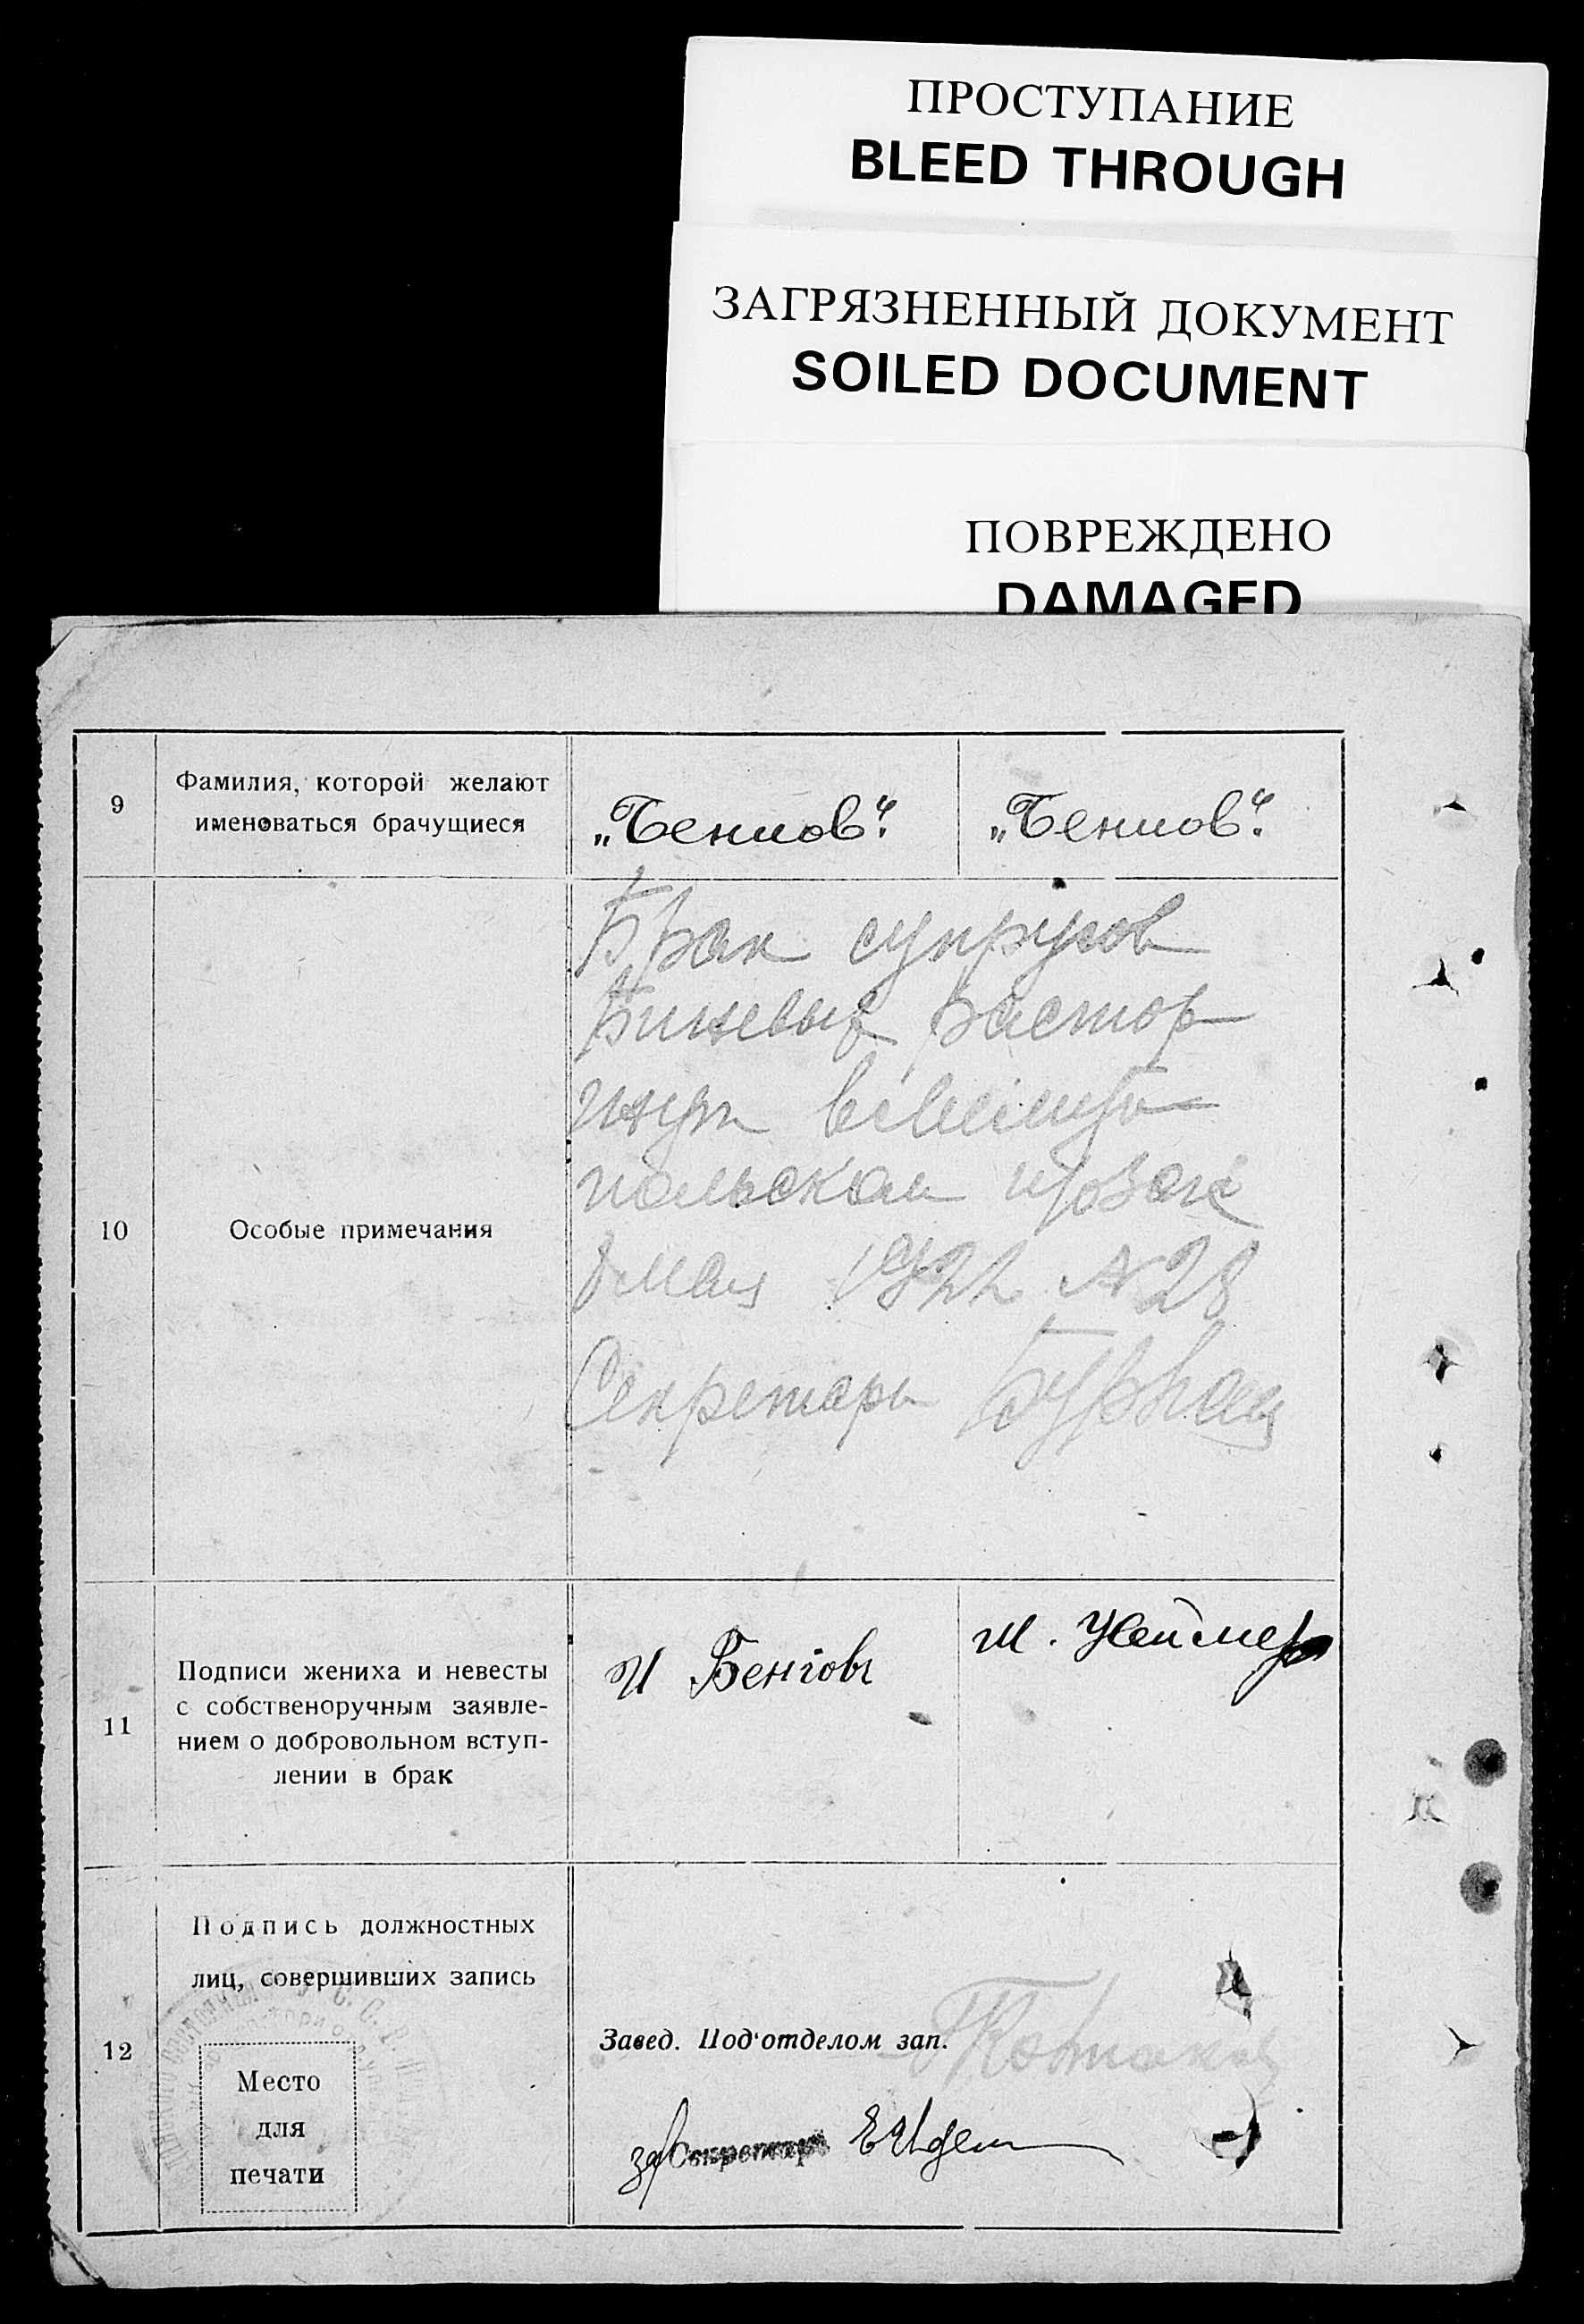 ПРОСТУПАНИЕ
BLEED THROUGH
ЗАГРЯЗНЕННЫЙ ДОКУМЕНТ
SOILED DOCUMENT
ПОВРЕЖДЕНО
DAMAGED
9
Фамилия, которой желают
именоваться брачущиеся
„Бенцов“.
„Бенцов“.
10
Особые примечания
Брак супругов
растор
польском
мая 1922 N 28
Секретарь
11
Подписи жениха и невесты
с собственоручным заявле-
нием о добровольном вступ-
лении в брак
И
М.
12
Подпись должностных
лиц, совершивших запись
Место
для
печати
Завед. Под'отделом зап.
за Секретаря